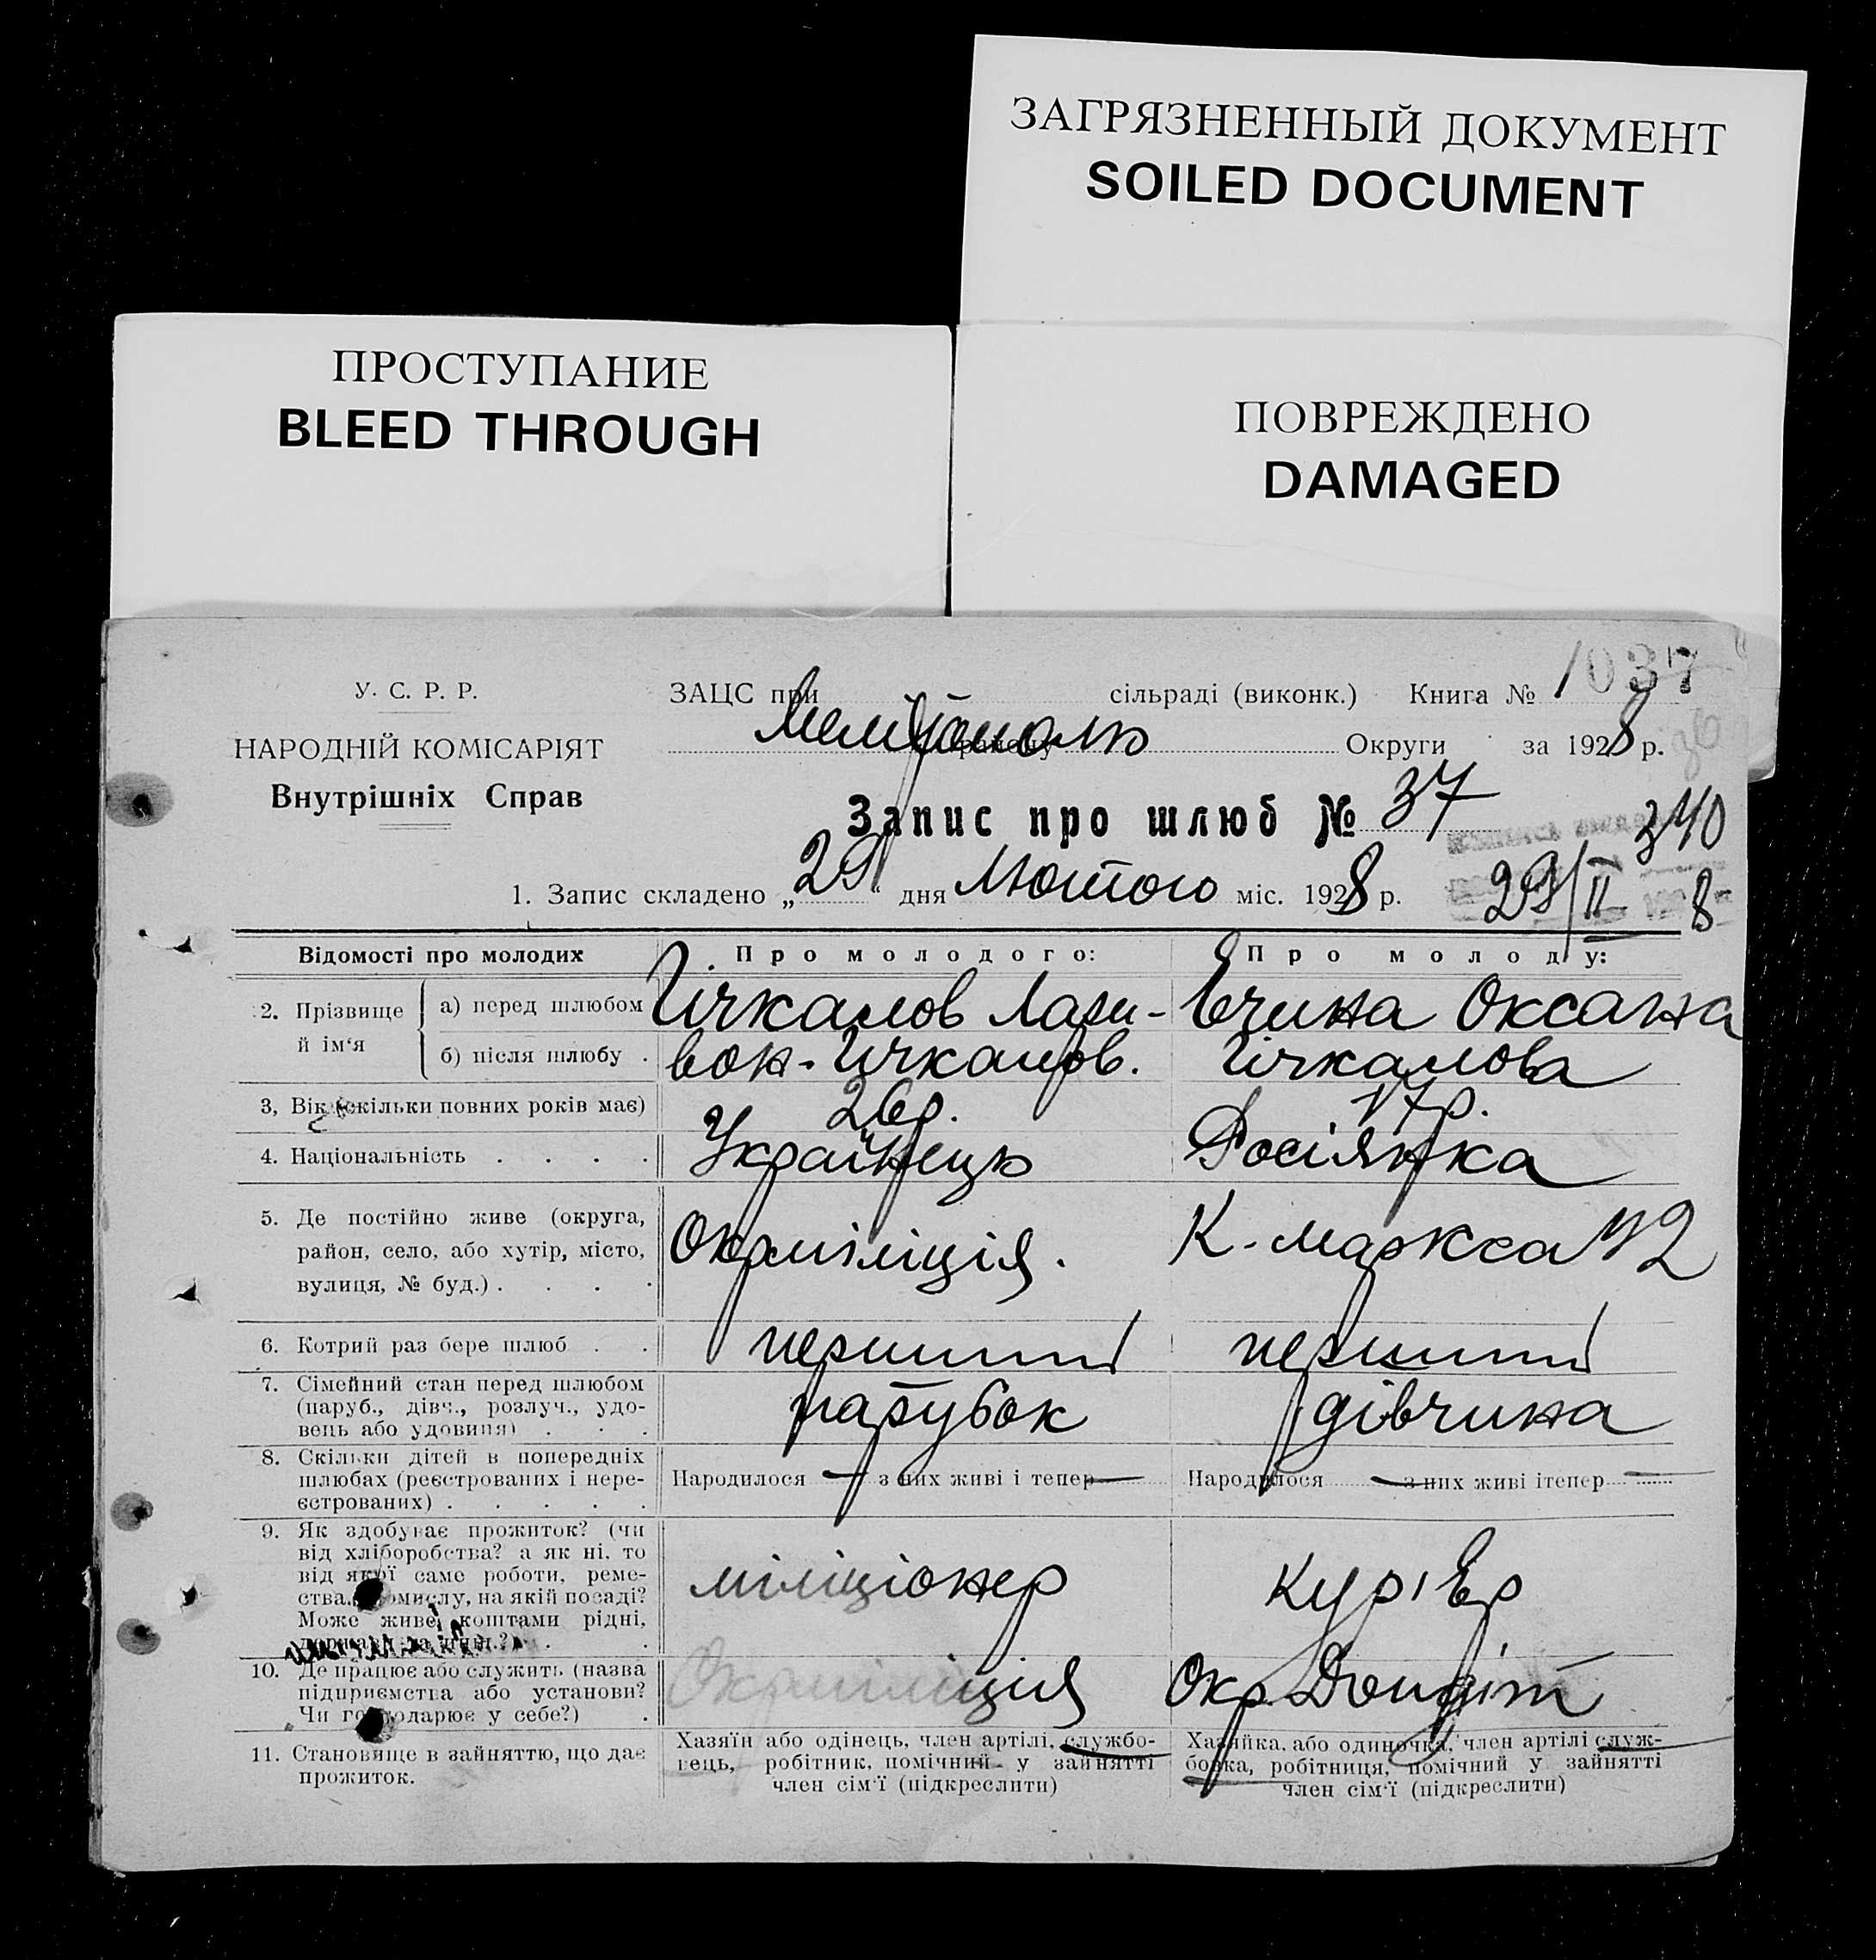 ЗАГРЯЗНЕННЫЙ ДОКУМЕНТ
SOILED DOCUMENT
ПРОСТУПАНИЕ
BLEED THROUGH
ПОВРЕЖДЕНО
DAMAGED
У. С. Р. Р.
НАРОДНІЙ КОМІСАРІЯТ
Внутрішніх Справ
ЗАЦС при сільраді (виконк.) Книга № 1037
Мелітополь району Округи за 1928 р.
Запис про шлюб № 37
340
1. Запис складено „29“ дня Лютого міс. 1928 р. 29/II 8
Відомості про молодих
Про молодого:
Про молоду:
2. Прізвище й ім'я
а) перед шлюбом
Ічкалов Лари-
Єчина Оксана
б) після шлюбу
вон - Ічкалов.
Ічкалова
3, Вік (скільки повних років має)
26 р.
17 р.
4. Національність
Українець
Росіянка
5. Де постійно живе (округа,
район, село, або хутір, місто,
вулиця, № буд.)
Окрміліція.
К-Маркса 42
6. Котрий раз бере шлюб
перший
перший
7. Сімейний стан перед шлюбом
(паруб., дівч., розлуч., удо-
вець або удовиця)
парубок
дівчина
8. Скільки дітей в попередніх
шлюбах (реєстрованих і нере-
єстрованих)
Народилося — з них живі і тепер —
Народилося — з них живі ітепер —
9. Як здобуває прожиток? (чи
від хліборобства? а як ні, то
від якої саме роботи, реме-
ства, промислу, на якій посаді?
Може живе коштами рідні,
міліціонер
кур'єр
10. Де працює або служить (назва
підприємства або установи?
Чи господарює у себе?)
Окрміліція
Окр.
11. Становище в зайняттю, що дає
прожиток.
Хазяїн або одінець, член артілі, службо-
вець, робітник, помічний у зайнятті
член сім'ї (підкреслити)
Хазяйка, або одиночка, член артілі служ-
бовка, робітниця, помічний у зайнятті
член сім'ї (підкреслити)